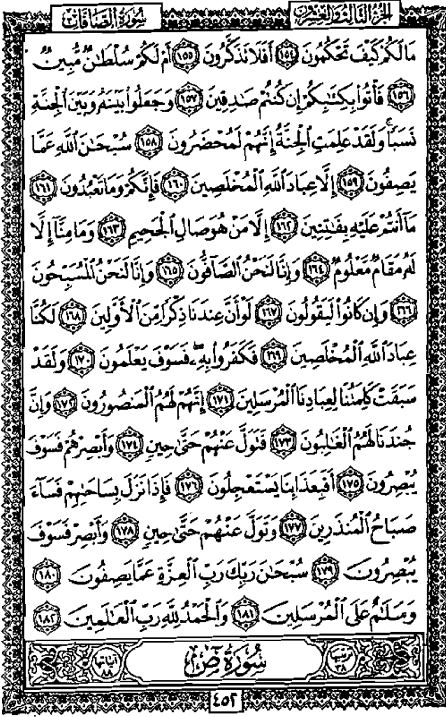 الجزء الثالث والعشرون سورة الصافات
مَا لَكُمْ كَيْفَ تَحْكُمُونَ ١٥٤ أَفَلَا تَذَكَّرُونَ ١٥٥ أَمْ لَكُمْ سُلْطَانٌ مُّبِينٌ
١٥٦ فَأْتُوا بِكِتَابِكُمْ إِن كُنتُمْ صَادِقِينَ ١٥٧ وَجَعَلُوا بَيْنَهُ وَبَيْنَ الْجِنَّةِ
نَسَبًا وَلَقَدْ عَلِمَتِ الْجِنَّةُ إِنَّهُمْ لَمُحْضَرُونَ ١٥٨ سُبْحَانَ اللَّهِ عَمَّا
يَصِفُونَ ١٥٩ إِلَّا عِبَادَ اللَّهِ الْمُخْلَصِينَ ١٦٠ فَإِنَّكُمْ وَمَا تَعْبُدُونَ ١٦١
مَا أَنتُمْ عَلَيْهِ بِفَاتِنِينَ ١٦٢ إِلَّا مَنْ هُوَ صَالِ الْجَحِيمِ ١٦٣ وَمَا مِنَّا إِلَّا
لَهُ مَقَامٌ مَّعْلُومٌ ١٦٤ وَإِنَّا لَنَحْنُ الصَّافُّونَ ١٦٥ وَإِنَّا لَنَحْنُ الْمُسَبِّحُونَ
١٦٦ وَإِن كَانُوا لَيَقُولُونَ ١٦٧ لَوْ أَنَّ عِندَنَا ذِكْرًا مِّنَ الْأَوَّلِينَ ١٦٨ لَكُنَّا
عِبَادَ اللَّهِ الْمُخْلَصِينَ ١٦٩ فَكَفَرُوا بِهِ فَسَوْفَ يَعْلَمُونَ ١٧٠ وَلَقَدْ
سَبَقَتْ كَلِمَتُنَا لِعِبَادِنَا الْمُرْسَلِينَ ١٧١ إِنَّهُمْ لَهُمُ الْمَنصُورُونَ ١٧٢ وَإِنَّ
جُندَنَا لَهُمُ الْغَالِبُونَ ١٧٣ فَتَوَلَّ عَنْهُمْ حَتَّىٰ حِينٍ ١٧٤ وَأَبْصِرْهُمْ فَسَوْفَ
يُبْصِرُونَ ١٧٥ أَفَبِعَذَابِنَا يَسْتَعْجِلُونَ ١٧٦ فَإِذَا نَزَلَ بِسَاحَتِهِمْ فَسَاءَ
صَبَاحُ الْمُنذَرِينَ ١٧٧ وَتَوَلَّ عَنْهُمْ حَتَّىٰ حِينٍ ١٧٨ وَأَبْصِرْ فَسَوْفَ
يُبْصِرُونَ ١٧٩ سُبْحَانَ رَبِّكَ رَبِّ الْعِزَّةِ عَمَّا يَصِفُونَ ١٨٠
وَسَلَامٌ عَلَى الْمُرْسَلِينَ ١٨١ وَالْحَمْدُ لِلَّهِ رَبِّ الْعَالَمِينَ ١٨٢
ترتيبها ٣٨ سورة ص آياتها ٨٨
٤٥٢